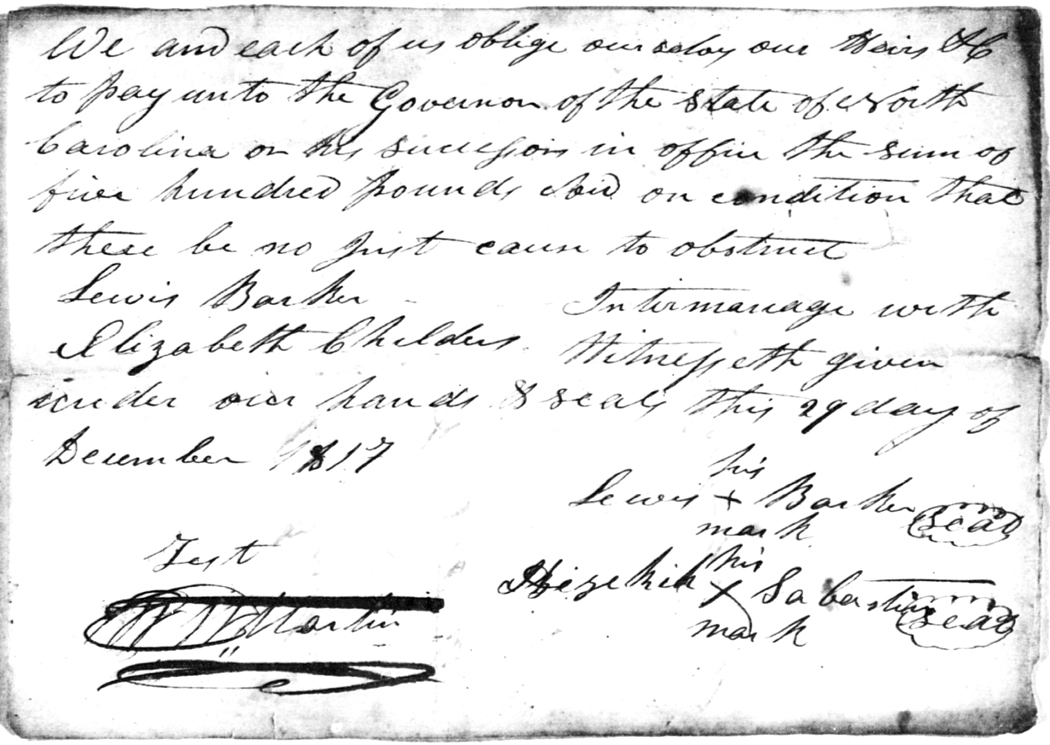 We and each of us oblige ourselvs our Heirs &C
to pay unto the Governor of the State of North
Carolina or his successors in office the sum of
five hundred pounds void on condition that
these be no Just cause to obstruct
Lewis Barker Intermariage with
Elizabeth Childers Witnesseth given
under our hands & seals this 29 day of
December 1817
his
Lewis + Barker seal
mark
his
Hezekiah x Sabastin seal
mark
Test
Martin